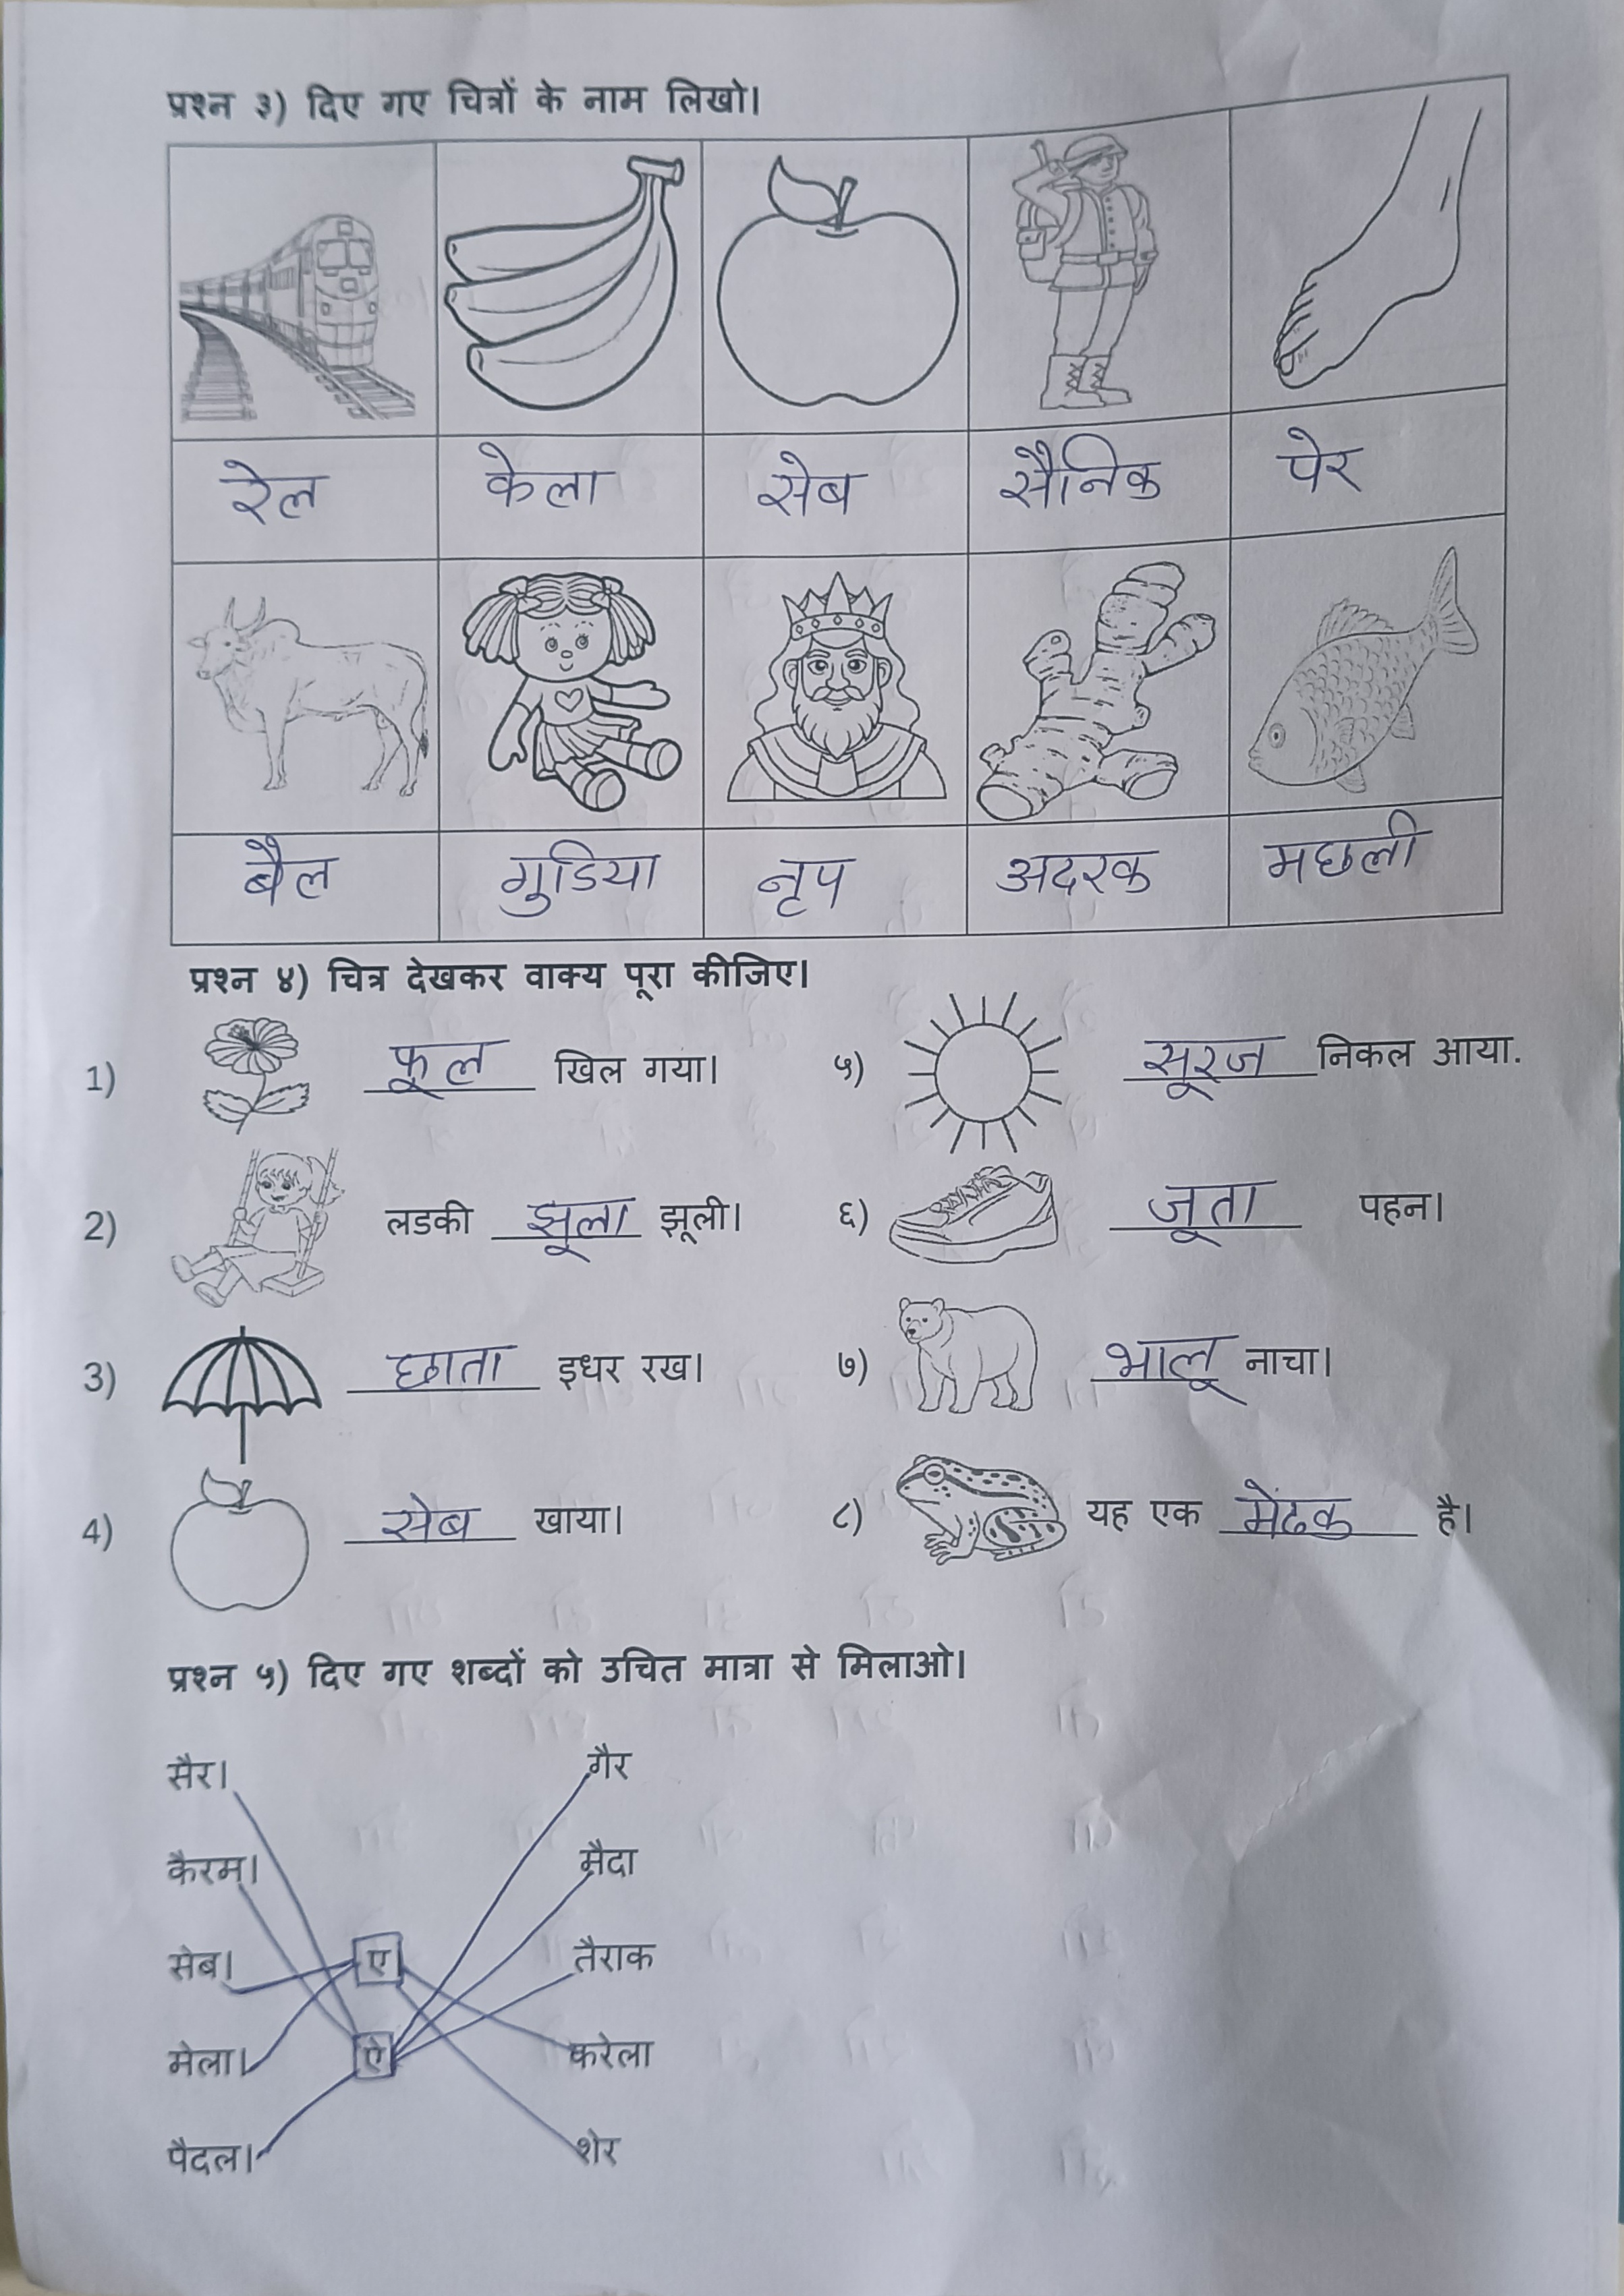 प्रश्न ३) दिए गए चित्रों के नाम लिखो।
रेल केला सेब सैनिक पेर
बैल गुडिया नृप अदरक मछली
प्रश्न ४) चित्र देखकर वाक्य पूरा कीजिए।
1) फूल खिल गया। ५) सूरज निकल आया.
2) लडकी झूला झूली। ६) जूता पहन।
3) छाता इधर रख। ७) भालू नाचा।
4) सेब खाया। ८) यह एक मेंढक है।
प्रश्न ५) दिए गए शब्दों को उचित मात्रा से मिलाओ।
सैर। गैर
कैरम। मैदा
सेब। ए तैराक
मेला। ऐ करेला
पैदल। शेर